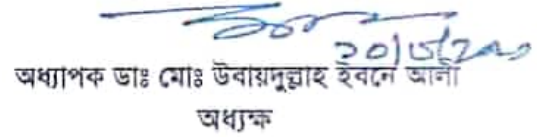 অধ্যাপক ডাঃ মোঃ উবায়দুল্লাহ ইবনে আলী
অধ্যক্ষ